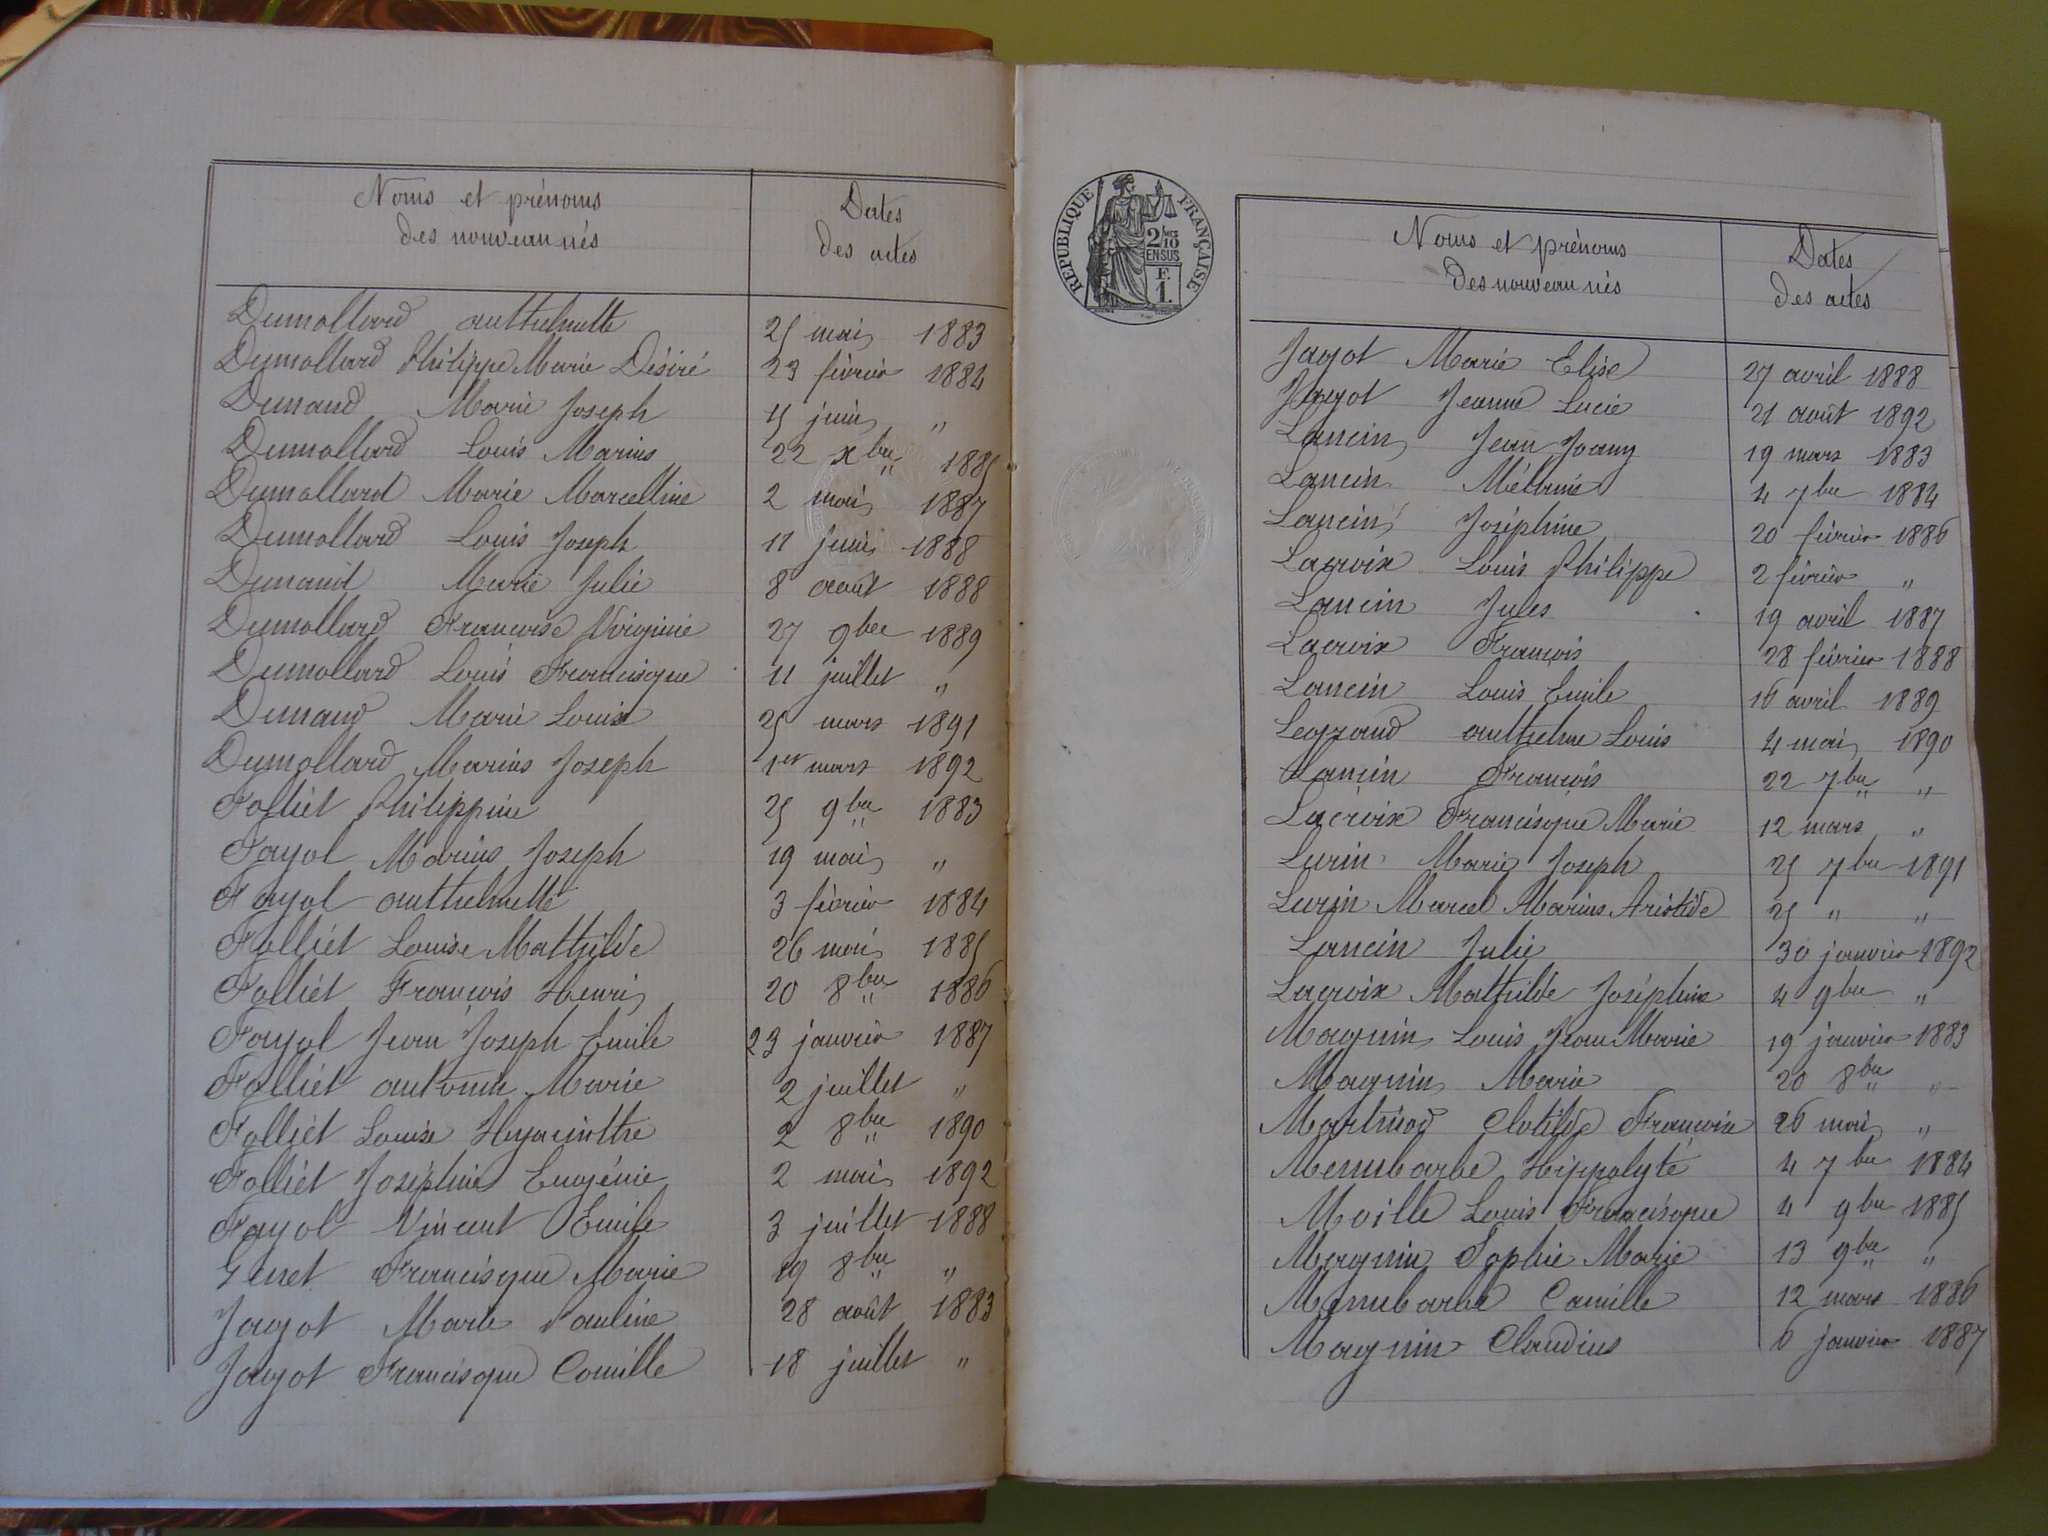 Noms et prénoms
des nouveau nés
Dates
des actes
Dumollard anthelmette 25 mai 1883
Dumollard Philippe Marie Désiré 23 février 1884
Dunand Marie Joseph 5 juin "
Dumollard Louis Marius 22 xbre 1885
Dumollard Marie Marcelline 2 mai 1887
Dumollard Louis Joseph 11 juin 1888
Dunand Marie Julie 8 août 1888
Dumollard Francoise Virginie 27 9bre 1889
Dumollard Louis Francisque 11 juillet "
Dunand Marie Louise 25 mars 1891
Dumollard Marius Joseph 1er mars 1892
Folliet Philippine 25 9bre 1883
Fayol Marius Joseph 19 mai "
Fayol anthelmette 3 février 1884
Folliet Louise Mathilde 26 mai 1885
Folliet François Henri 20 8bre 1886
Fayol Jean Joseph Emile 23 janvier 1887
Folliet antonin Marie 2 juillet "
Folliet Louise Hyacinthe 2 8bre 1890
Folliet Joséphine Eugénie 2 mai 1892
Fayol Vincent Emile 3 juillet 1888
Genet Francisque Marie 19 8bre "
Jagot Marie Pauline 28 août 1883
Jagot Francisque Camille 18 juillet "
REPUBLIQUE FRANÇAISE
2/10
EN SUS
F.
1.
Noms et prénoms
des nouveau nés
Dates
des actes
Jagot Marie Elise 27 avril 1888
Jagot Jeanne Lucie 21 août 1892
Lancin Jean Joany 19 mars 1883
Lancin Mélanie 4 7bre 1884
Lancin Joséphine 20 février 1886
Lacroix Louis Philippe 2 février "
Lancin Jules 19 avril 1887
Lacroix François 28 février 1888
Lancin Louis Emile 16 avril 1889
Legrand anthelme Louis 4 mai 1890
Lancin François 22 7bre "
Lacroix Francisque Marie 12 mars "
Lurin Marie Joseph 25 7bre 1891
Lurin Marcel Marius Aristide 25 " "
Lancin Julie 30 janvier 1892
Lacroix Mathilde Joséphine 4 9bre "
Magnin Louis Jean Marie 19 janvier 1883
Magnin Marie 20 8bre "
Martinod Clotilde Françoise 26 mai "
Membarbe Hippolyte 4 7bre 1884
Moille Louis Francisque 4 9bre 1885
Magnin Sophie Marie 13 9bre "
Membarbe Camille 12 mars 1886
Magnin Claudius 6 janvier 1887